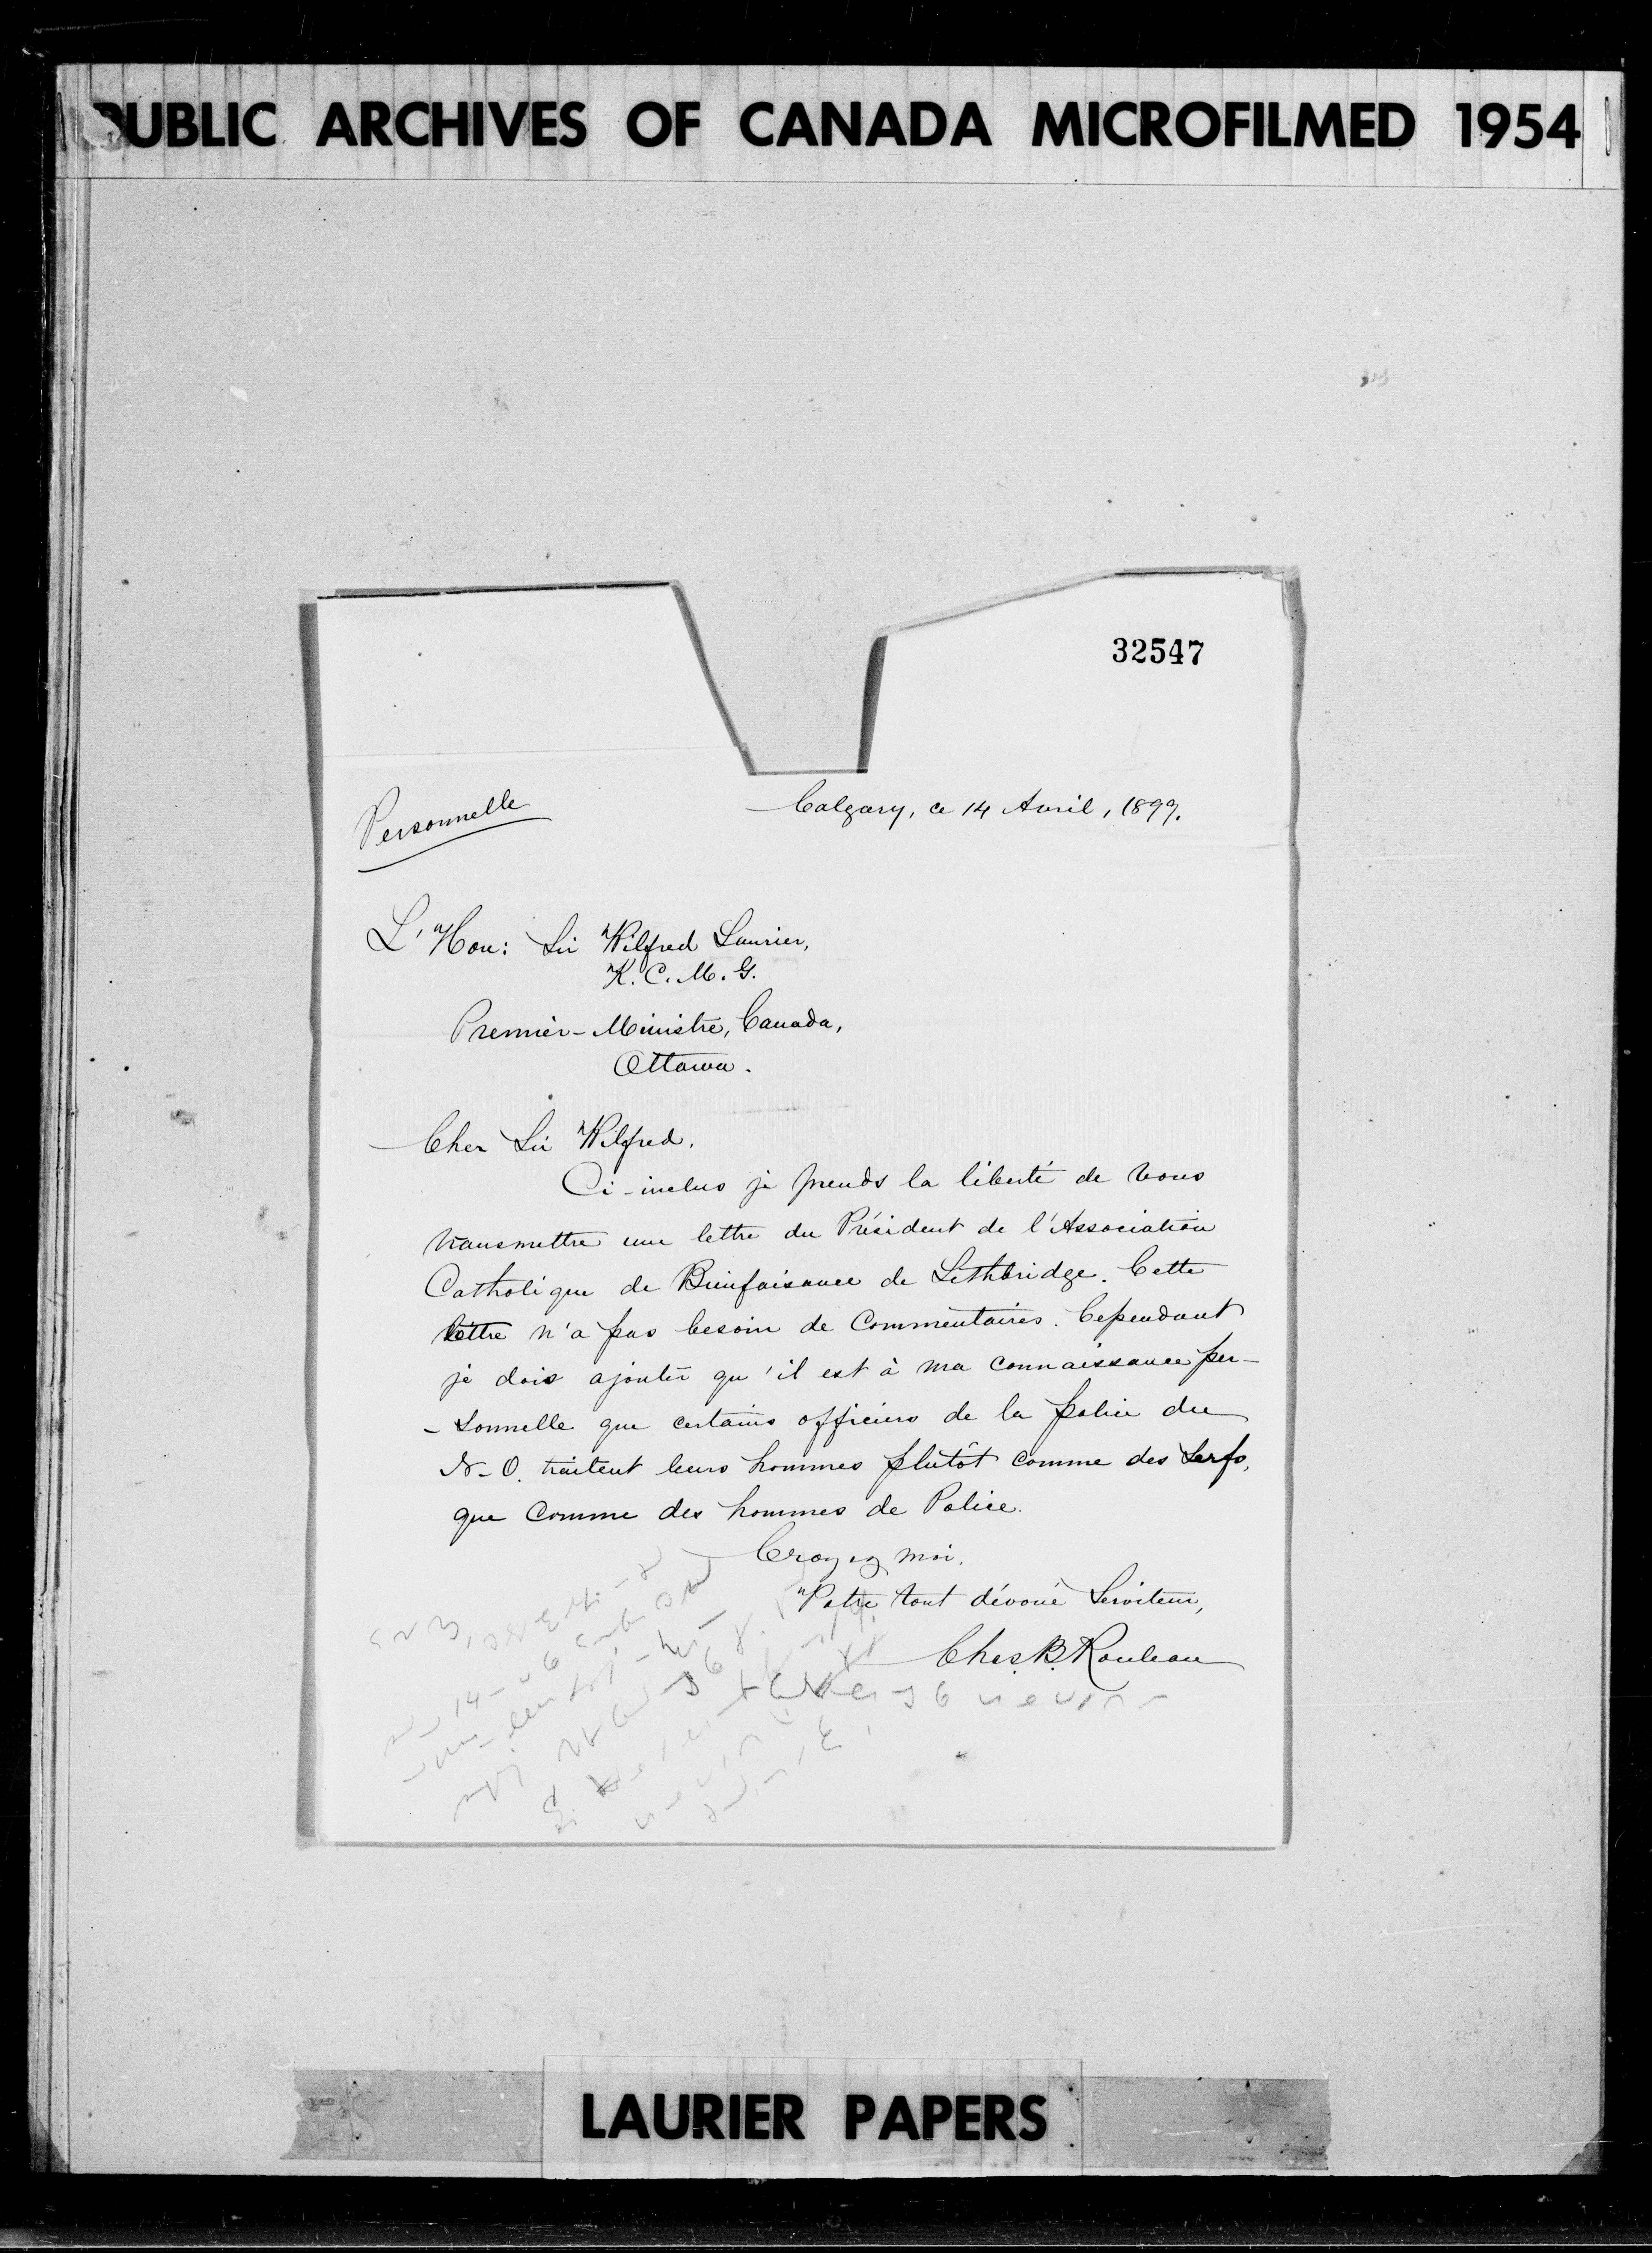 PUBLIC ARCHIVES OF CANADA MICROFILMED 1954
32547
Personnelle
Calgary, ce 14 Avril, 1899.
L'Hon: Sir Wilfred Laurier,
K.C.M.G.
Premier-Ministre, Canada,
Ottawa.
Cher Sir Wilfred.
Ci-inclus je prends la liberté de vous
transmettre une lettre du Président de l'Association
Catholique de Bienfaisance de Lethbridge. Cette
lettre n'a pas besoin de Commentaires. Cependant
je dois ajouter qu'il est à ma connaissance per-
-sonnelle que certains officiers de la police du
N-O. traitent leurs hommes plutôt comme des Serfs,
que comme des hommes de Police.
Croyez moi,
Votre tout dévoué Serviteur,
Chas. B. Rouleau
LAURIER PAPERS